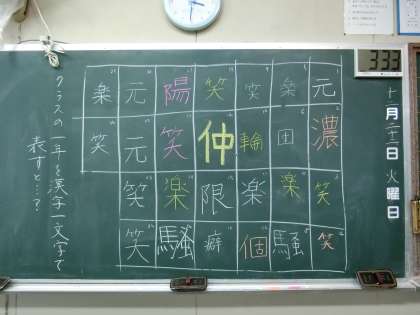 十二月二十二日 火曜日
333
元 濃 笑 笑
楽 団 楽 騒
笑 輪 楽 個
笑 仲 限 癖
陽 笑 楽 騒
元 元 笑 笑
楽 笑
クラスの一年を漢字一文字で
表すと…?